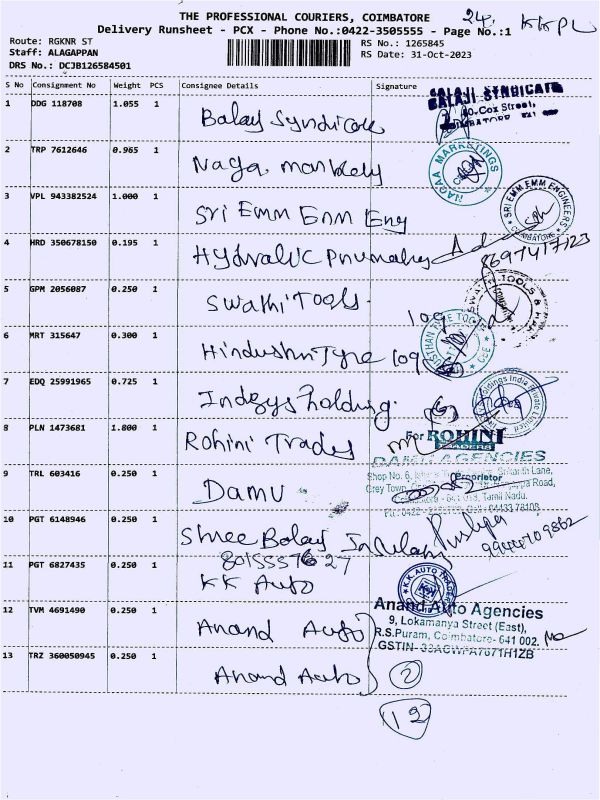 THE PROFESSIONAL COURIERS, COIMBATORE
24. KKPL
Delivery Runsheet - PCX - Phone No.:0422-3505555 - Page No.:1
Route: RGKNR ST
RS No.: 1265845
Staff: ALAGAPPAN
RS Date: 31-Oct-2023
DRS No.: DCJB126584501
S No Consignment No Weight PCS Consignee Details Signature
1 DDG 118708 1.055 1 Balaji Syndicate
BALAJI SYNDICATE
Cox Street,
COIMBATORE
2 TRP 7612646 0.965 1 Naga
NAGAA MARKETINGS
CBE
3 VPL 943382524 1.000 1 Sri Emm Enm Eng
SRI EMM EMM ENGINEERS
COIMBATORE
4 HRD 350678150 0.195 1
5 GPM 2056087 0.250 1 Swathi Tools.
6 MRT 315647 0.300 1 Hindusthn Tyre
CBE
7 EDQ 25991965 0.725 1 Indsys holding.
Holdings India Private Limited
8 PLN 1473681 1.800 1 Rohini Trades
For ROHINI TRADERS
Proprietor
9 TRL 603416 0.250 1 Damu
AGENCIES
Shop No. 6, Srikanth Lane,
Grey Town, Road,
Tamil Nadu.
10 PGT 6148946 0.250 1 Shree Balaji
Pushpa
11 PGT 6827435 0.250 1 KK Auto
K.K. AUTO
12 TVM 4691490 0.250 1 Anand Auto
Anand Auto Agencies
9, Lokamanya Street (East),
R.S.Puram, Coimbatore- 641 002.
13 TRZ 360050945 0.250 1 Anand Auto
2
12